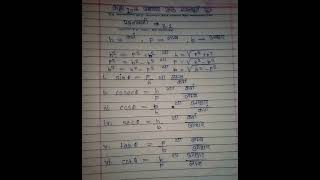 h = कर्ण , p = लम्ब , b = आधार
h² = p² + b² या h = √p² + b²
p² = h² - b² या p = √h² - b²
b² = h² - p² या b = √h² - p²
i. sinθ = p/h या लम्ब/कर्ण
ii. cosecθ = h/p या कर्ण/लम्ब
iii. cosθ = b/h या आधार/कर्ण
iv. secθ = h/b या कर्ण/आधार
v. tanθ = p/b या लम्ब/आधार
vi. cotθ = b/p या आधार/लम्ब